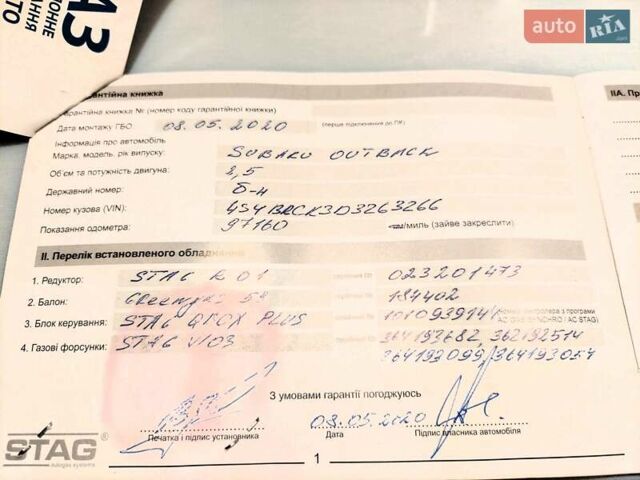 АЗ
ОННЕ
АННЯ
ТО
auto RIA.com
арантійна книжка
ІІА. Пр
Гарантійна книжка № (номер коду гарантійної книжки)
Дата монтажу ГБО: 08.05.2020 (перше підключення до ПК)
Інформація про автомобіль
Марка, модель, рік випуску: SUBARU OUTBACK
Об'єм та потужність двигуна: 2,5
Державний номер: Б-н
Номер кузова (VIN): 4S4BRCK3D3263266
Показання одометра: 97160 /миль (зайве закреслити)
ІІ. Перелік встановленого обладнання
1. Редуктор: STAG R 01 023201473
2. Балон: 58 184402
3. Блок керування: STAG QBOX PLUS 1010939144 контролера з програми
AC STAG)
4. Газові форсунки: STAG W03 364193682, 362192514
364193099, 364193054
З умовами гарантії погоджуюсь
08.05.2020
Печатка і підпис установника Дата Підпис власника автомобіля
STAG®
autogas systems
1